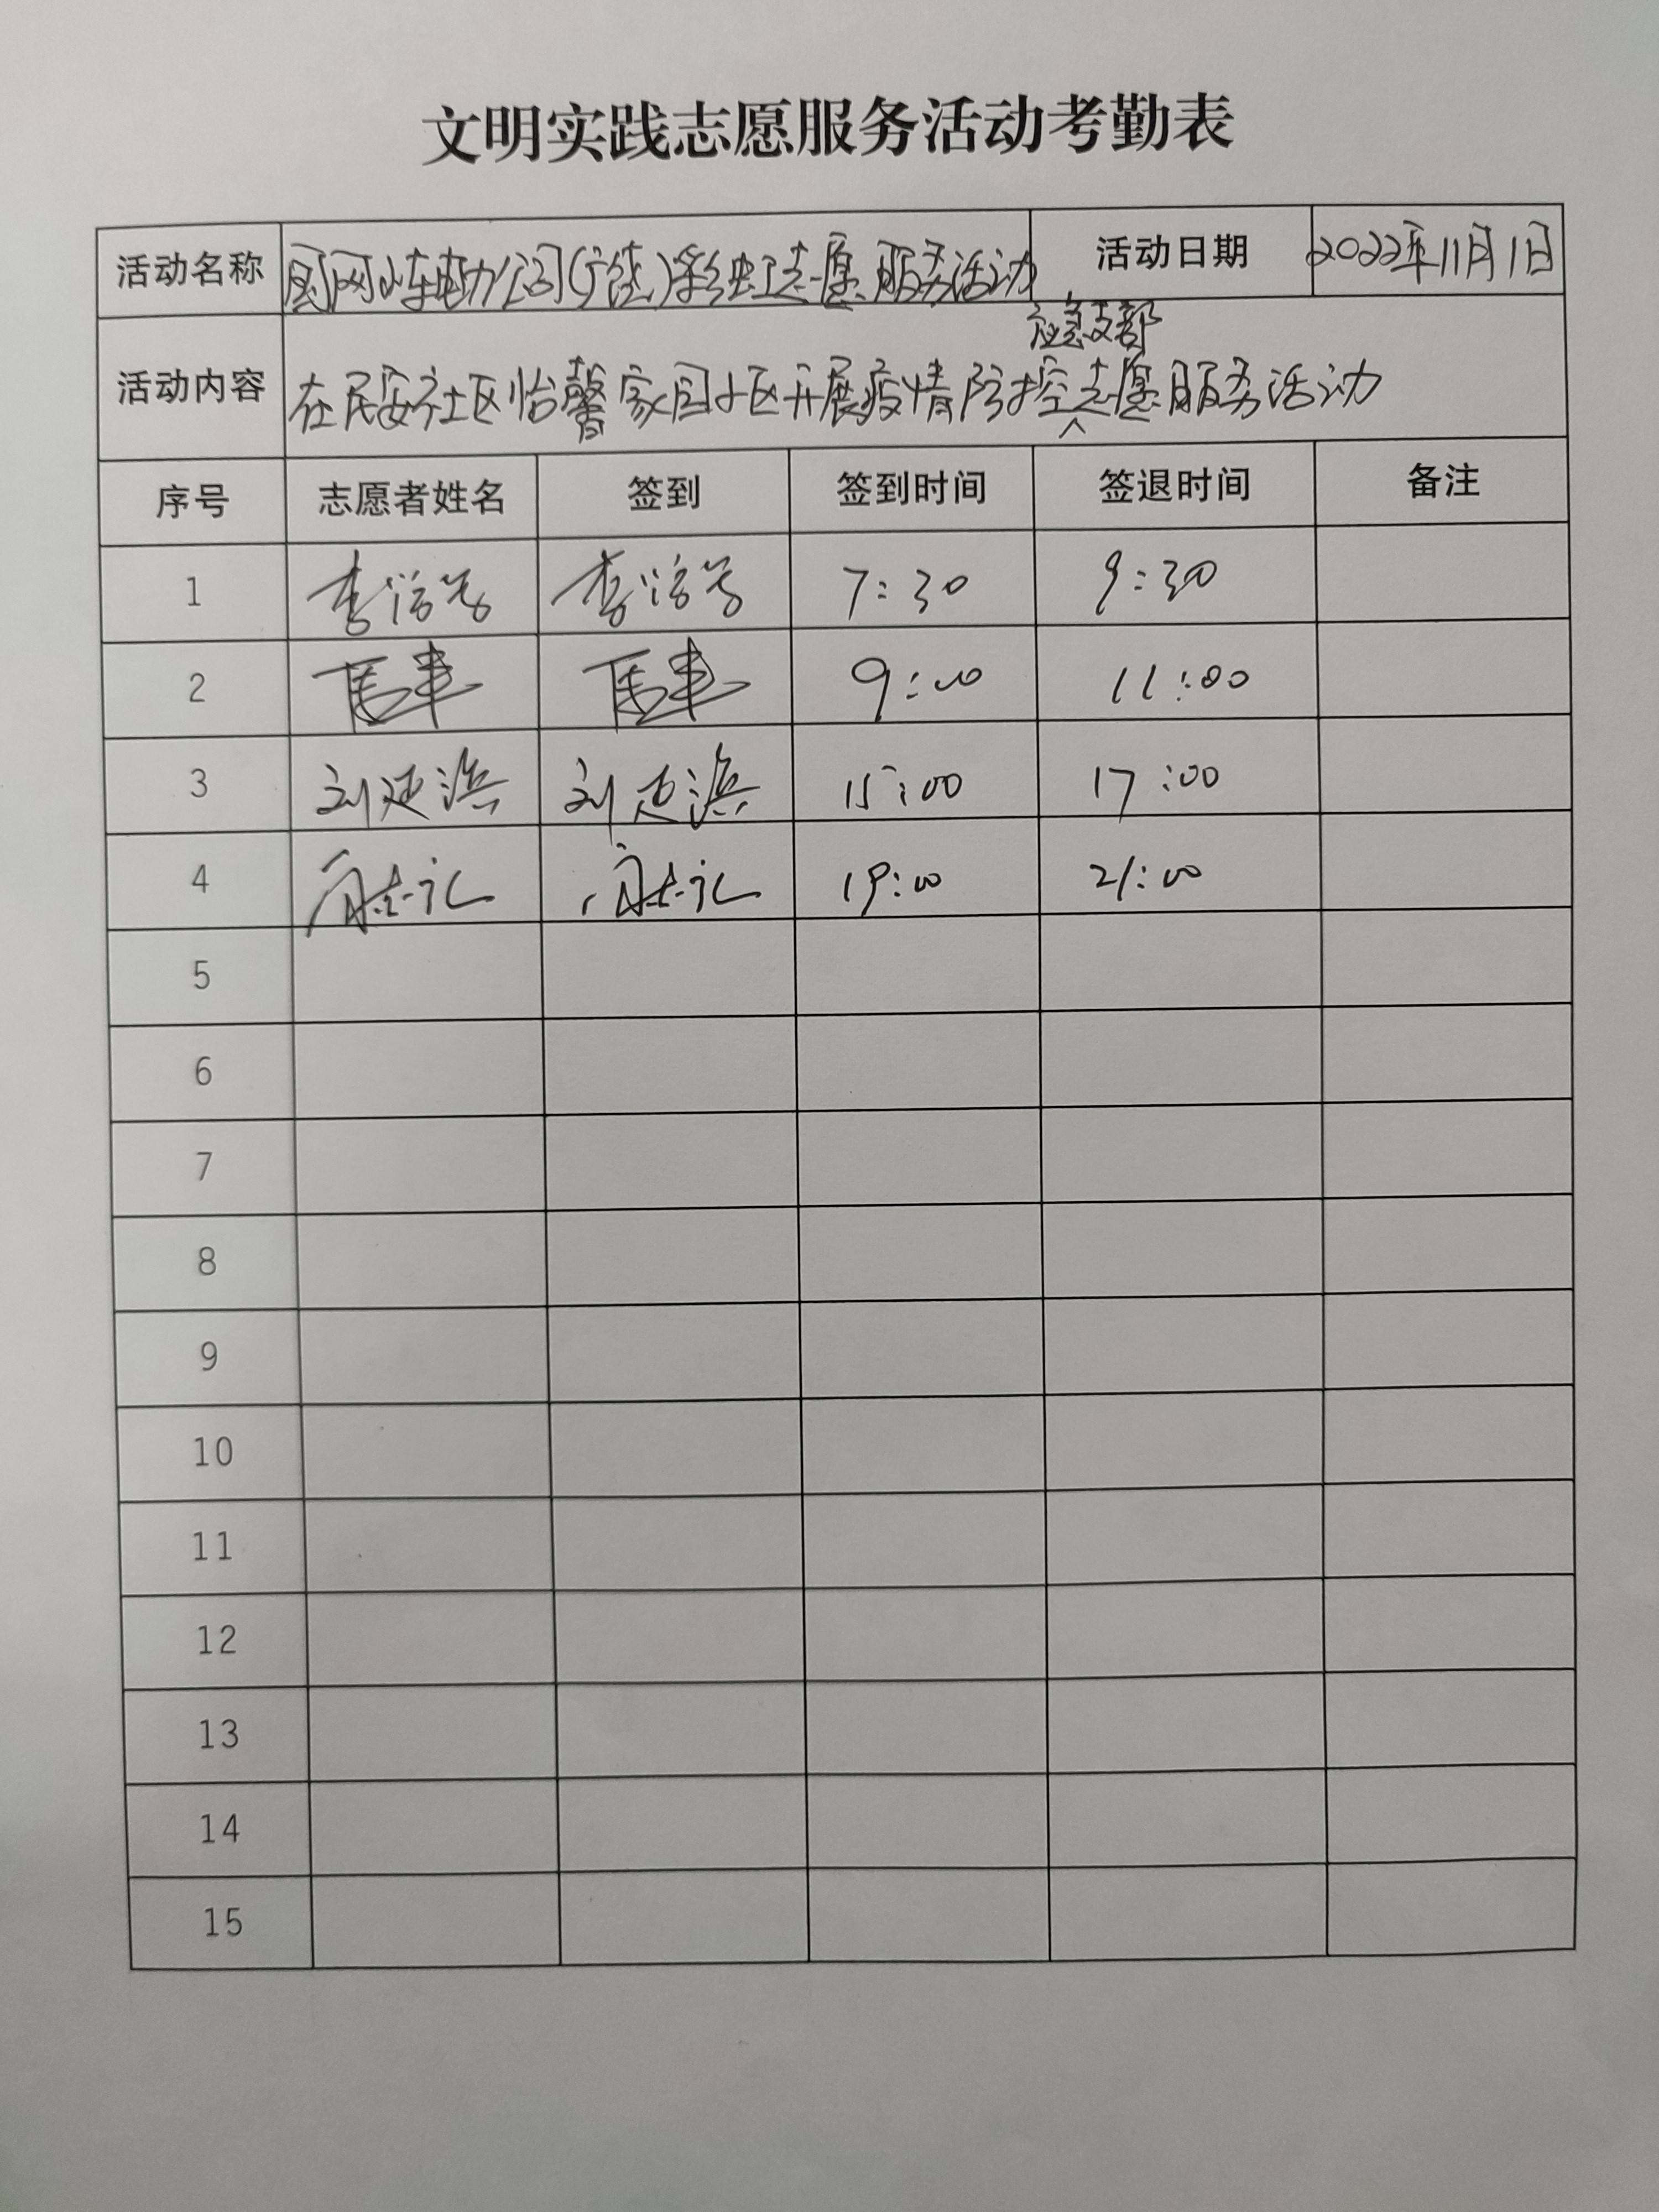 文明实践志愿服务活动考勤表
活动名称 国网山东电力公司(广饶)彩虹志愿服务活动 活动日期 2022年11月1日
应急支部
活动内容 在民安社区怡馨家园小区开展疫情防控^志愿服务活动
序号 志愿者姓名 签到 签到时间 签退时间 备注
1 李 李 7:30 9:30
2 9:00 11:00
3 刘延滨 刘延滨 15:00 17:00
4 19:00 21:00
5
6
7
8
9
10
11
12
13
14
15